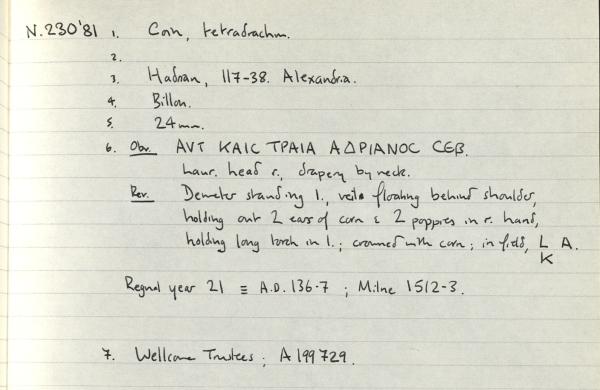 N.230'81 1. Coin, tetradrachm.
2.
3. Hadrian, 117-38. Alexandria.
4. Billon.
5. 24mm.
6. Obv. ΑVΤ ΚΑΙC ΤΡΑΙΑ ΑΔΡΙΑΝΟC CЄΒ.
Laur. head r., drapery by neck.
Rev. Demeter standing l., veil floating behind shoulder,
holding out 2 ears of corn & 2 poppies in r. hand,
holding long torch in l.; crowned with corn; in field, L A.
K
Regnal year 21 ≡ A.D. 136-7 ; Milne 1512-3.
7. Wellcome Trustees; A 199729.